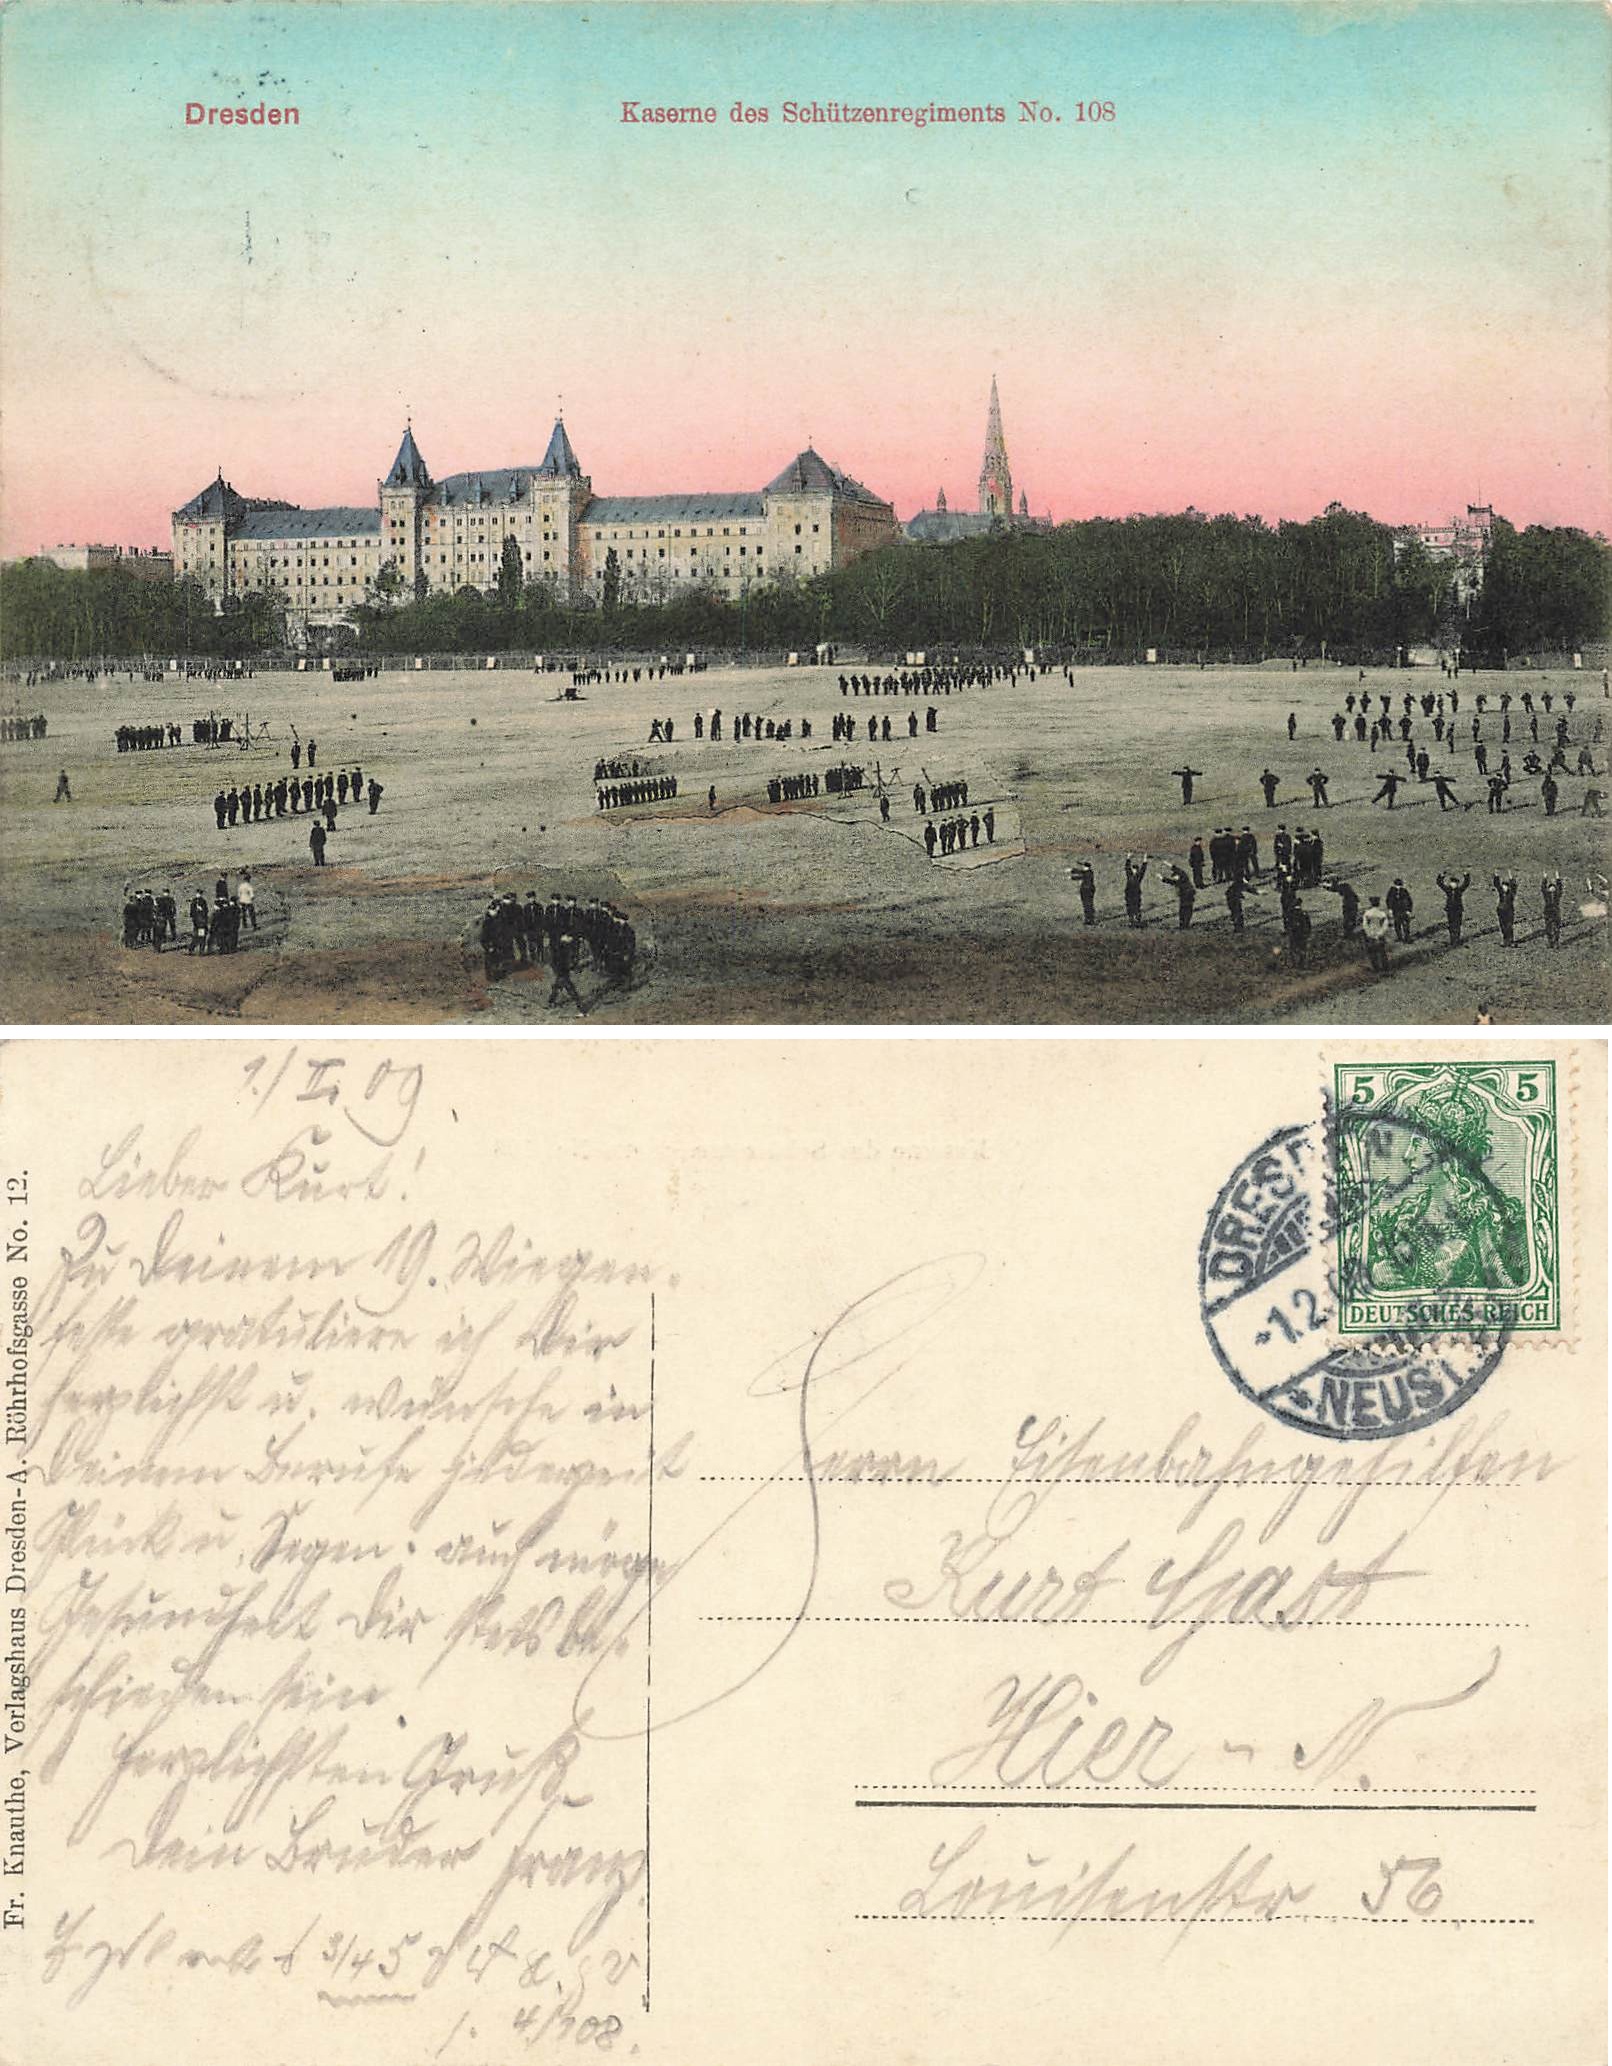 Dresden
Kaserne des Schützenregiments No. 108
1./II. 09.
Lieber Kurt!
Zu Deinem 19. Wiegen-
feste gratuliere ich Dir
herzlichst u. wünsche in
Deinem Berufe jederzeit
Glück u. Segen; auch möge
Gesundheit Dir stets be-
schieden sein.
Herzlichsten Gruß
Dein Bruder Franz.
3/45
4/108.
Fr. Knauthe, Verlagshaus Dresden-A. Röhrhofsgasse No. 12.
5 5
DEUTSCHES REICH
DRESDEN
-1.2.
*NEUST.
Herrn Eisenbahngehilfen
Kurt Gast
Hier - N.
Louisenstr. 56